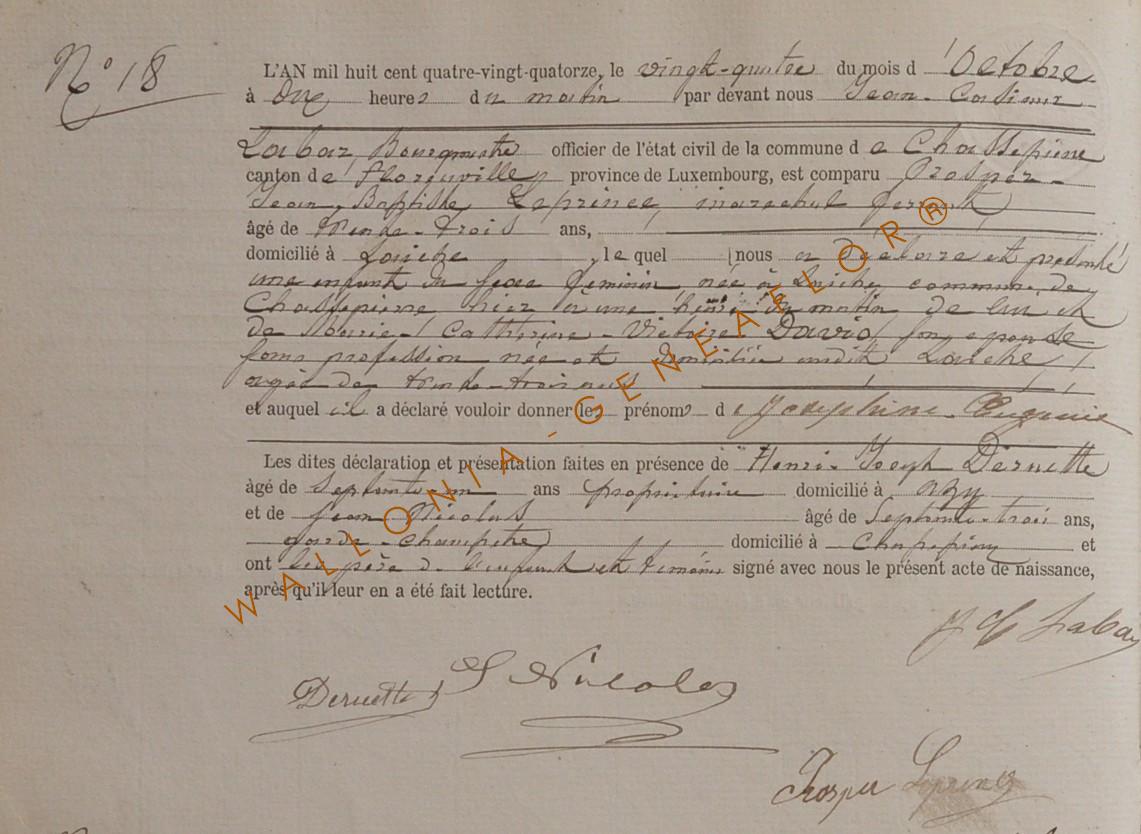 N° 18
L'AN mil huit cent quatre-vingt-quatorze, le vingt-quatre du mois d'Octobre
à Onze heures du matin par devant nous Jean-Casimir
Labaz, Bourgmestre officier de l'état civil de la commune de Chassepierre
canton de Florenville province de Luxembourg, est comparu Prosper-
Jean-Baptiste Leprince, marechal ferrant
âgé de trente-trois ans,
domicilié à Laiche, le quel nous a déclaré et présenté
une enfant du sexe féminin née à Laiche, commune de
Chassepierre hier à une heure du matin de lui et
de Marie-Catherine-Victoire David, son epouse
sans profession née et domiciliée audit Laiche,
agée de trente-trois ans
et auquel il a déclaré vouloir donner les prénoms de Josephine-Eugenie
Les dites déclaration et présentation faites en présence de Henri-Joseph Deruette
âgé de septante-un ans propriétaire domicilié à Azy
et de Jean Nicolas âgé de septante-trois ans,
garde-champetre domicilié à Chassepierre et
ont les père de l'enfant et témoins signé avec nous le présent acte de naissance,
après qu'il leur en a été fait lecture.
J C Labaz
Deruette J Nicolas
Prosper Leprince
WALLONIA-GENEALOR®